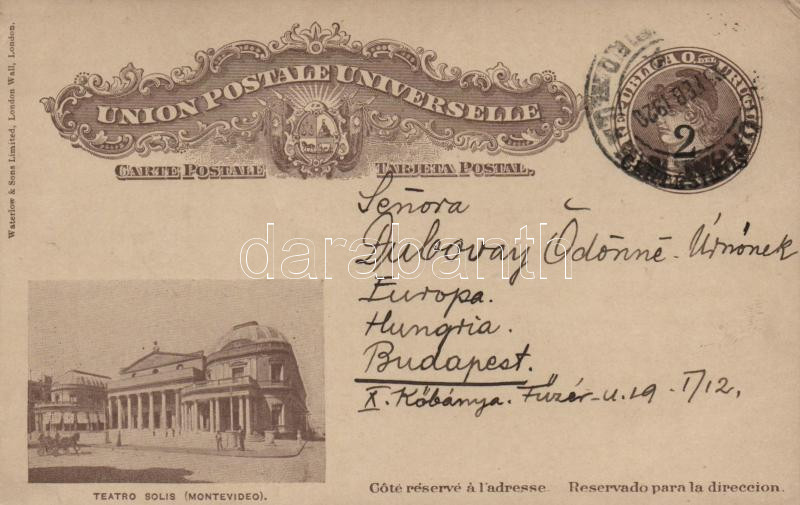 Waterlow & Sons Limited, London Wall, London.
UNION POSTALE UNIVERSELLE
CARTE POSTALE
TARJETA POSTAL.
REPUBLICA O. DEL URUGUAY
2
FEB 1920
Señora
Dubovay Ödönné Úrnőnek
Europa.
Hungria.
Budapest.
X. Kőbánya. Füzér-u. 19. I/12.
darabanth
TEATRO SOLIS (MONTEVIDEO).
Côté réservé à l'adresse. Reservado para la direccion.